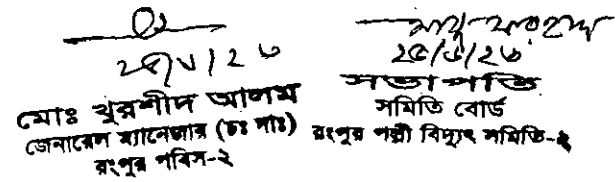 ২৫/৬/২৩
মোঃ খুরশীদ আলম
জেনারেল ম্যানেজার (চঃ দাঃ)
রংপুর পবিস-২
২৫/৬/২৩
সভাপতি
সমিতি বোর্ড
রংপুর পল্লী বিদ্যুৎ সমিতি-২